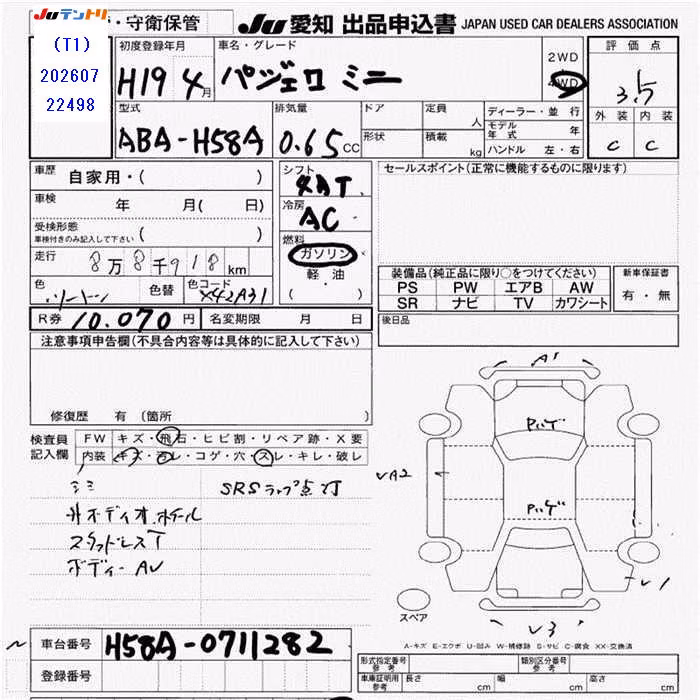 Juテントリ ・守衛保管 Ju 愛知 出品申込書 JAPAN USED CAR DEALERS ASSOCIATION
(T1)
202607
22498
初度登録年月 車名・グレード
H19 4月 パジェロ ミニ
2WD
4WD
評価点
3.5
外装 内装
C C
型式 排気量 ドア 定員 人
ABA-H58A 0.65 CC
形状 積載 kg
ディーラー・並行
モデル年式 年
ハンドル 左・右
車歴 自家用・( )
車検 年 月( 日)
受検形態
車検付きのみ記入して下さい ( )
走行 8万8千918km
色 ツートン 色替 色コード X42A31
シフト
4AT
冷房
AC
燃料
ガソリン
軽・油
( )
セールスポイント(正常に機能するものに限ります)
装備品(純正品に限り○をつけてください)
PS PW エアB AW
SR ナビ TV カワシート
新車保証書
有・無
後日品
R券 10.070円 名変期限 月 日
注意事項申告欄(不具合内容等は具体的に記入して下さい)
修復歴 有(箇所 )
検査員記入欄
FW キズ・飛石・ヒビ割・リペア跡・X要
内装 キズ・汚レ・コゲ・穴・スレ・キレ・破レ
ミミ SRSランプ点灯
外ボディオ、ホイール
スタッドレスT
ボディーAU
A1
パハゲ
UA2
パハゲ
U1
U3
スペア
A-キズ E-エクボ U-凹み W-補修跡 S-サビ C-腐食 XX-交換済
車台番号 H58A-0711282
登録番号
形式指定番号参考 類別区分番号参考
車庫証明用参考 長さ cm 幅 cm 高さ cm